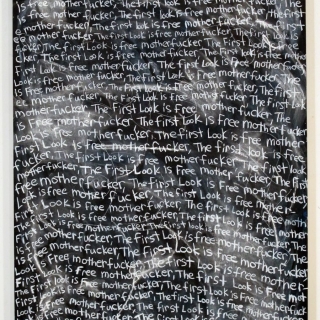 is free motherfucker, The first Look is free motherfucker, The
is free motherfucker, The first Look is free motherfucker, The first
e motherfucker, The first Look is free motherfucker, The first Look is
cker, The first Look is free motherfucker, The first Look is free
first Look is free motherfucker, The first Look is free mother
Look is free motherfucker, The first Look is free motherfucker,
is free motherfucker, The first Look is free motherfucker, The
ee motherfucker, The first Look is free motherfucker, The first Look
motherfucker, The first Look is free motherfucker, The
is Free motherfucker, The First Look is free motherfucker
Look is free motherfucker, The first Look is free mother
First Look is free motherfucker, The first Look is free
fucker, The first Look is free motherfucker, The first
motherfucker, The first Look is free motherfucker, The first
free motherfucker, The first Look is free motherfucker, The
Look is free motherfucker, The first Look is free mother
first Look is free motherfucker, The first Look is free
The first Look is free motherfucker, The first Look is
fucker, The first Look is free motherfucker, The first
is free motherfucker, The first Look is free motherfucker
Look is free motherfucker, The first Look is free mother-
The first Look is free motherfucker, The first Look is free mot
Look is free motherfucker, The first Look is free motherfuck